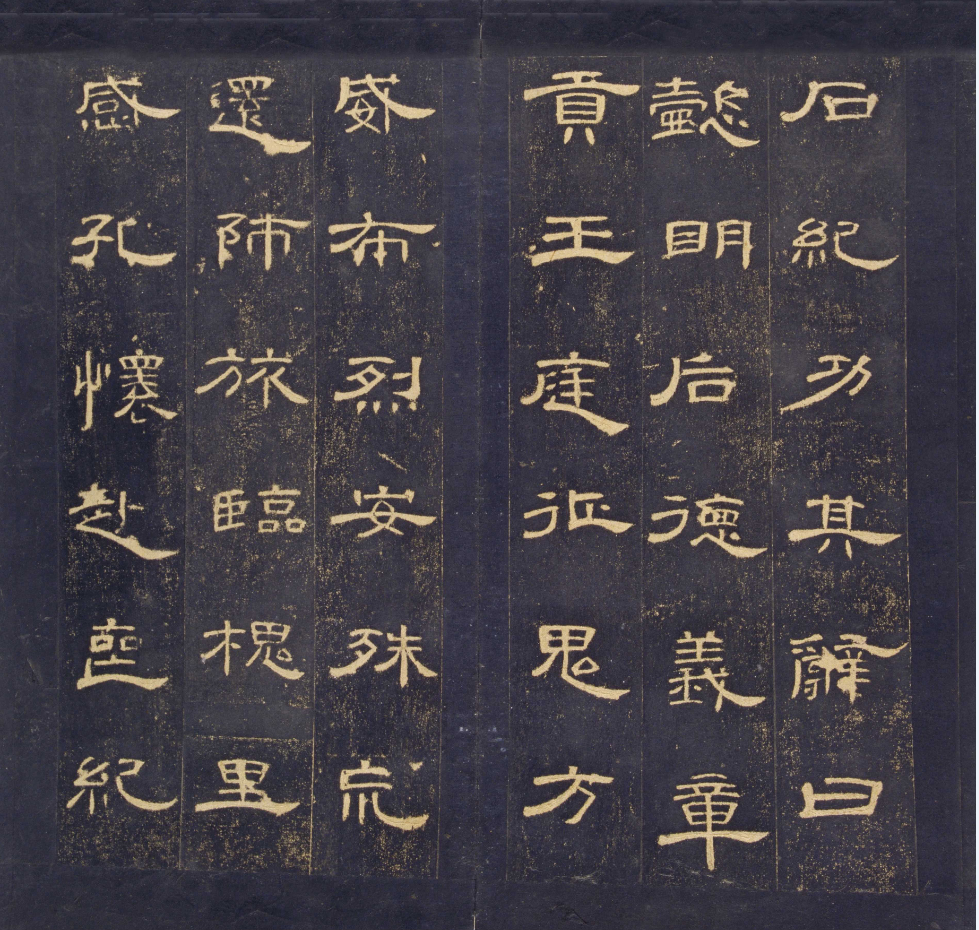 石紀功其辭曰
懿明后德義章
貢王庭征鬼方
威布烈安殊巟
還師旅臨槐里
感孔懷赴喪紀